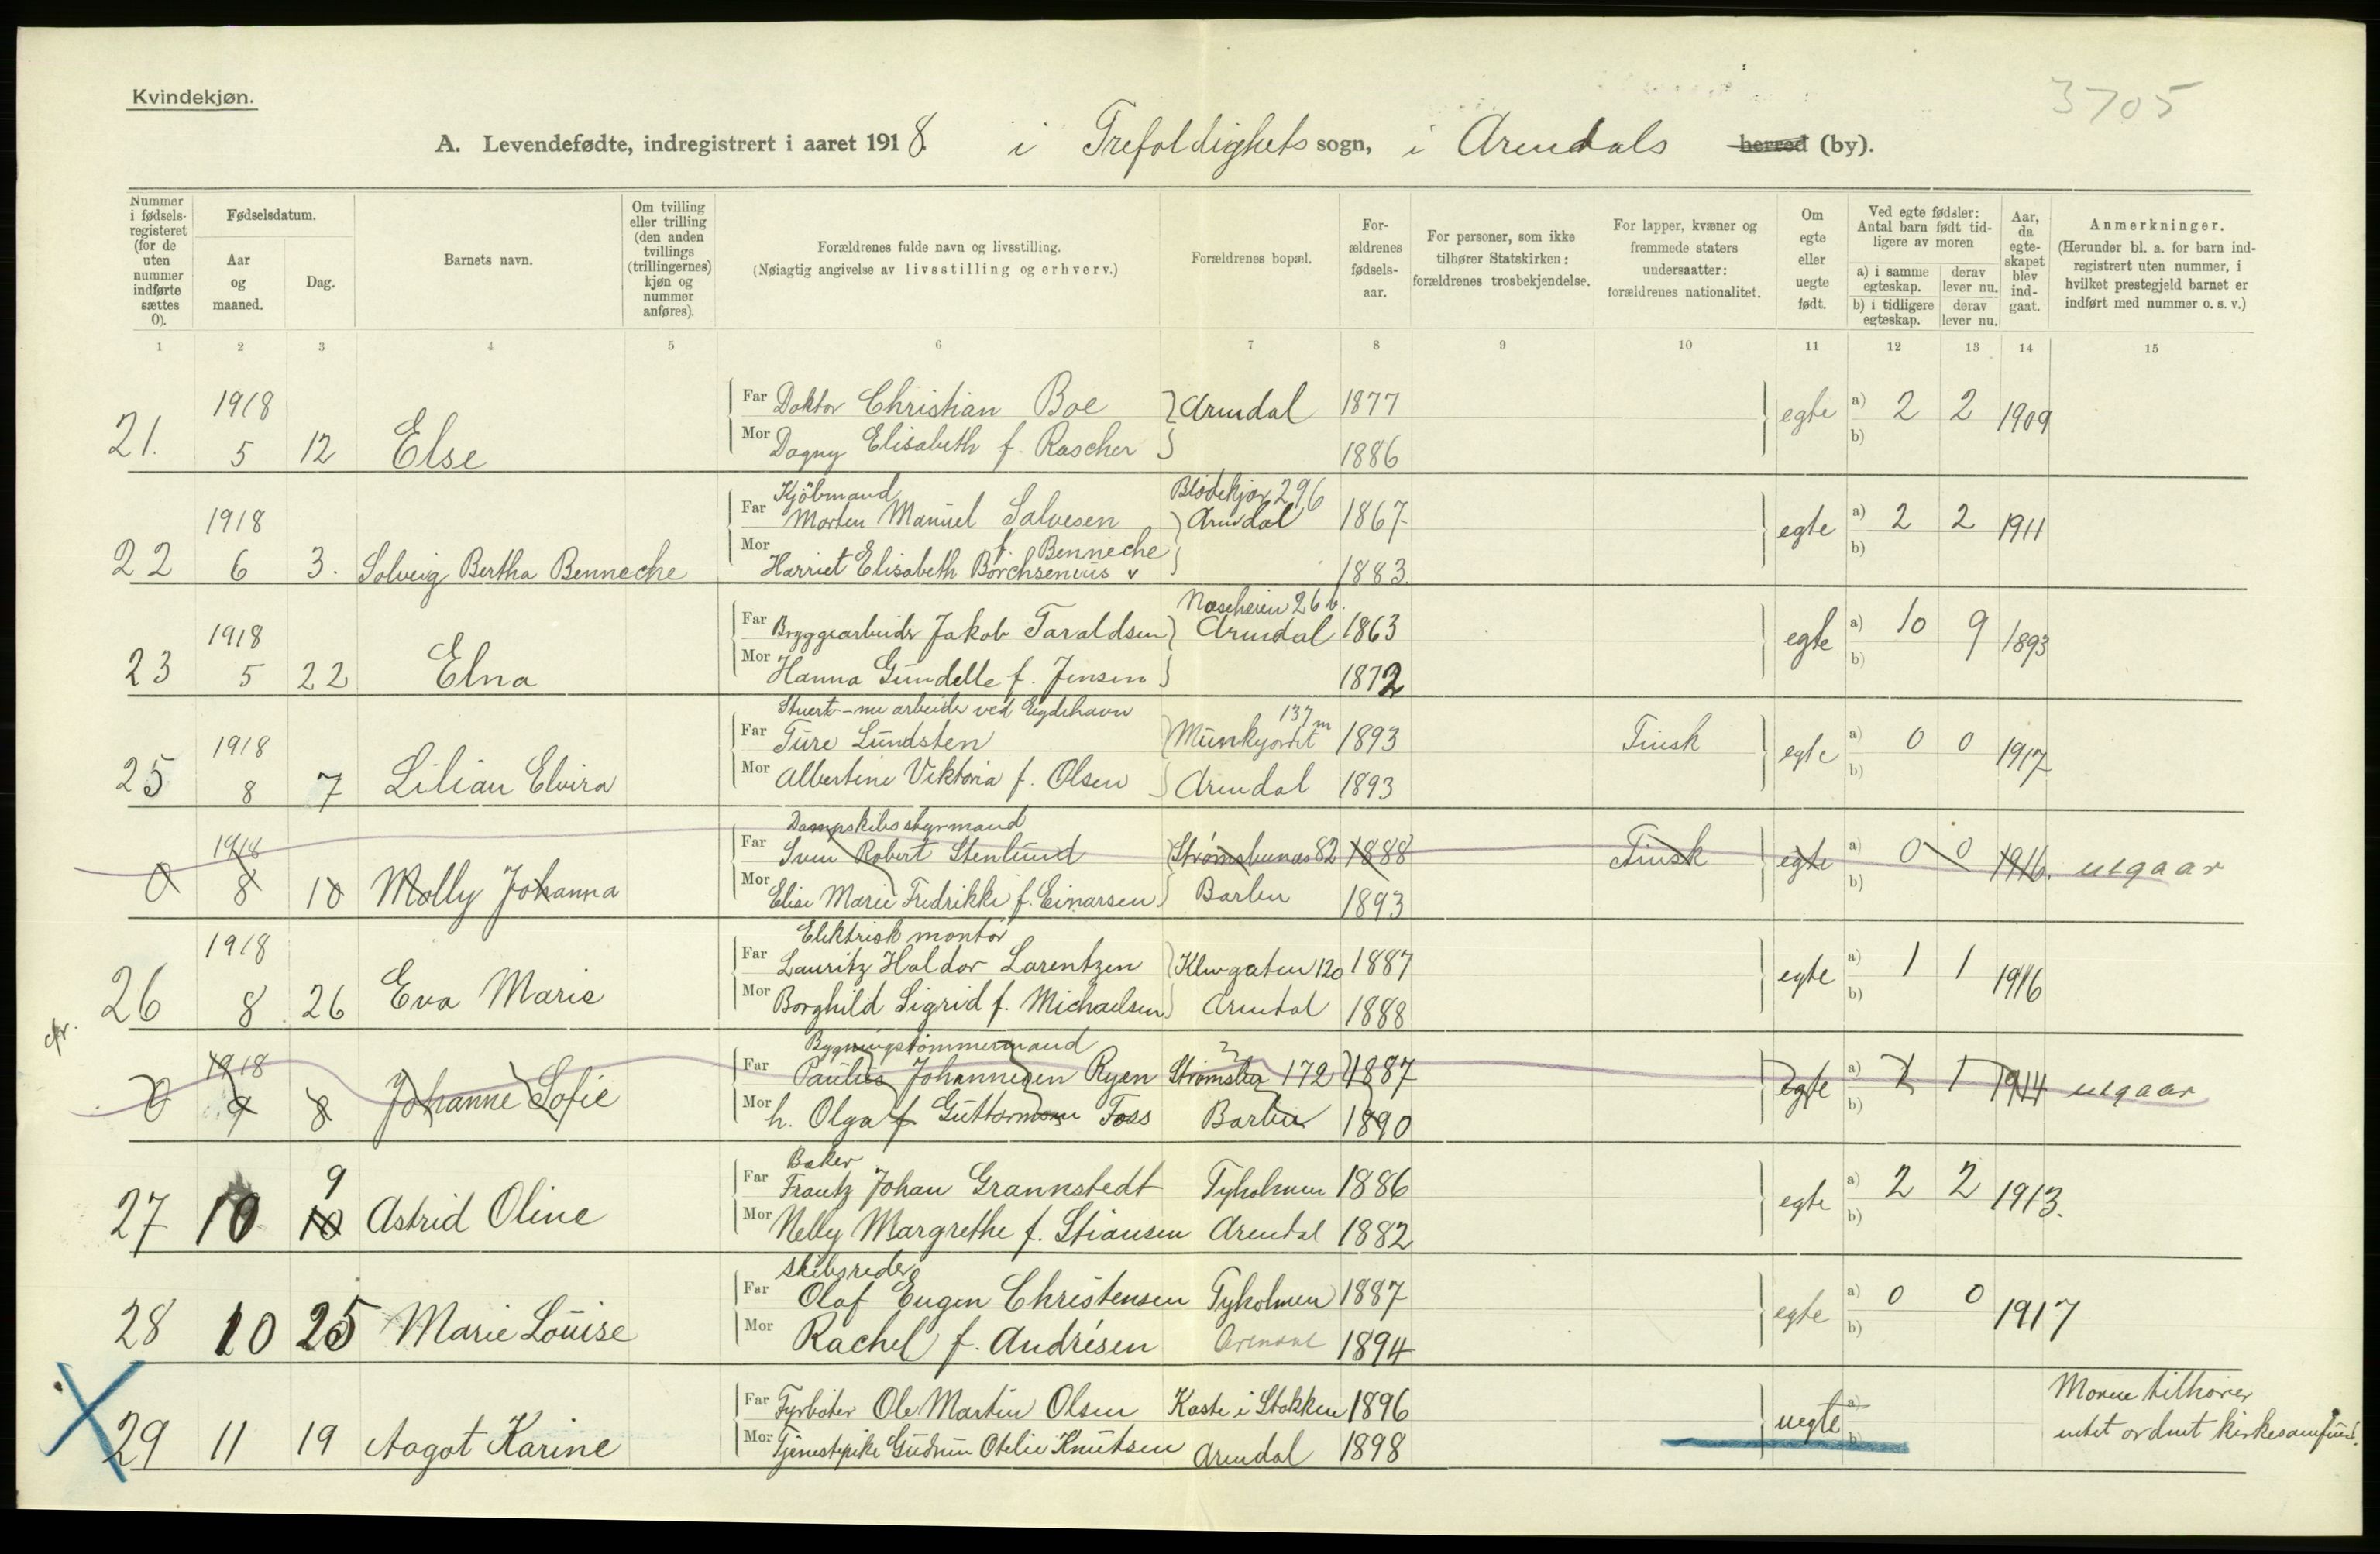 Kvindekjøn.
3705
A. Levendefødte, indregistrert i aaret 1918. i Trefoldighets sogn, i Arendals herred (by).
Nummer i fødselsregisteret (for de uten nummer indførte sættes 0).
Fødselsdatum.
Aar og maaned.
Dag.
Barnets navn.
Om tvilling eller trilling (den anden tvillings (trillingernes) kjøn og nummer anføres).
Forældrenes fulde navn og livsstilling.
(Nøiagtig angivelse av livsstilling og erhverv.)
Forældrenes bopæl.
Forældrenes fødselsaar.
For personer, som ikke tilhører Statskirken: forældrenes trosbekjendelse.
For lapper, kvæner og fremmede staters undersaatter: forældrenes nationalitet.
Om egte eller uegte født.
Ved egte fødsler: Antal barn født tidligere av moren
a) i samme egteskap.
derav lever nu.
b) i tidligere egteskap.
derav lever nu.
Aar, da egteskapet blev indgaat.
Anmerkninger.
(Herunder bl. a. for barn indregistrert uten nummer, i hvilket prestegjeld barnet er indført med nummer o. s. v.)
1 2 3 4 5 6 7 8 9 10 11 12 13 14 15
1918
Far Doktor Christian Boe Arendal 1877 egte a) 2 2 1909
21. 5 12 Else Mor Dagny Elisabeth f. Rascher 1886 b)
Kjöbmand Blödekjær 296
1918 Far Morten Manuel Salvesen Arendal 1867 egte a) 2 2 1911
f. Benneche
22 6 3. Solveig Bertha Benneche Mor Harriet Elisabeth Borchsenius v 1883. b)
Næsheien 26 b.
1918 Far Bryggearbeider Jakob Taraldsen Arendal 1863 egte a) 10 9 1893
23 5 22 Elna Mor Hanna Gundelle f. Jensen 1872 b)
Stuert - nu arbeider ved Eydehavn 137 m
1918 Far Ture Lundsten Munkejordet 1893 Finsk egte a) 0 0 1917
25 8 7 Lilian Elvira Mor Albertine Viktoria f. Olsen Arendal 1893 b)
Dampskibsstyrmand
1918 Far Sven Robert Stenlund Strømsbunæs 82 1888 Finsk egte a) 0 0 1916. utgaar
0 8 10 Molly Johanna Mor Elise Marie Fredrikke f. Einarsen Barbu 1893 b)
Elektrisk montör
1918 Far Lauritz Haldor Larentzen Klevgaten 120 1887 egte a) 1 1 1916
26 8 26 Eva Marie Mor Borghild Sigrid f. Michaelsen Arendal 1888 b)
cfr.
Bygningstömmermand
1918 Far Paulus Johannesen Ryen Strømsbu 172 1887 egte a) 1 1 1914 utgaar
0 9 8 Johanne Sofie Mor h. Olga f. Guttormsen Foss Barbu 1890 b)
Baker
9 Far Frantz Johan Grannstedt Tyholmen 1886 egte a) 2 2 1913.
27 10 10 Astrid Oline Mor Nelly Margrethe f. Stiansen Arendal 1882 b)
Skibsreder
Far Olaf Eugen Christensen Tyholmen 1887 egte a) 0 0 1917
28 10 25 Marie Louise Mor Rachel f. Andrésen Arendal 1894 b)
Far Fyrbøter Ole Martin Olsen Kaste i Stokken 1896 uegte a) Moren tilhører
29 11 19 Aagot Karine Mor Tjenestepike Gudrun Otelie Knutsen Arendal 1898 b) intet ordnet kirkesamfund.